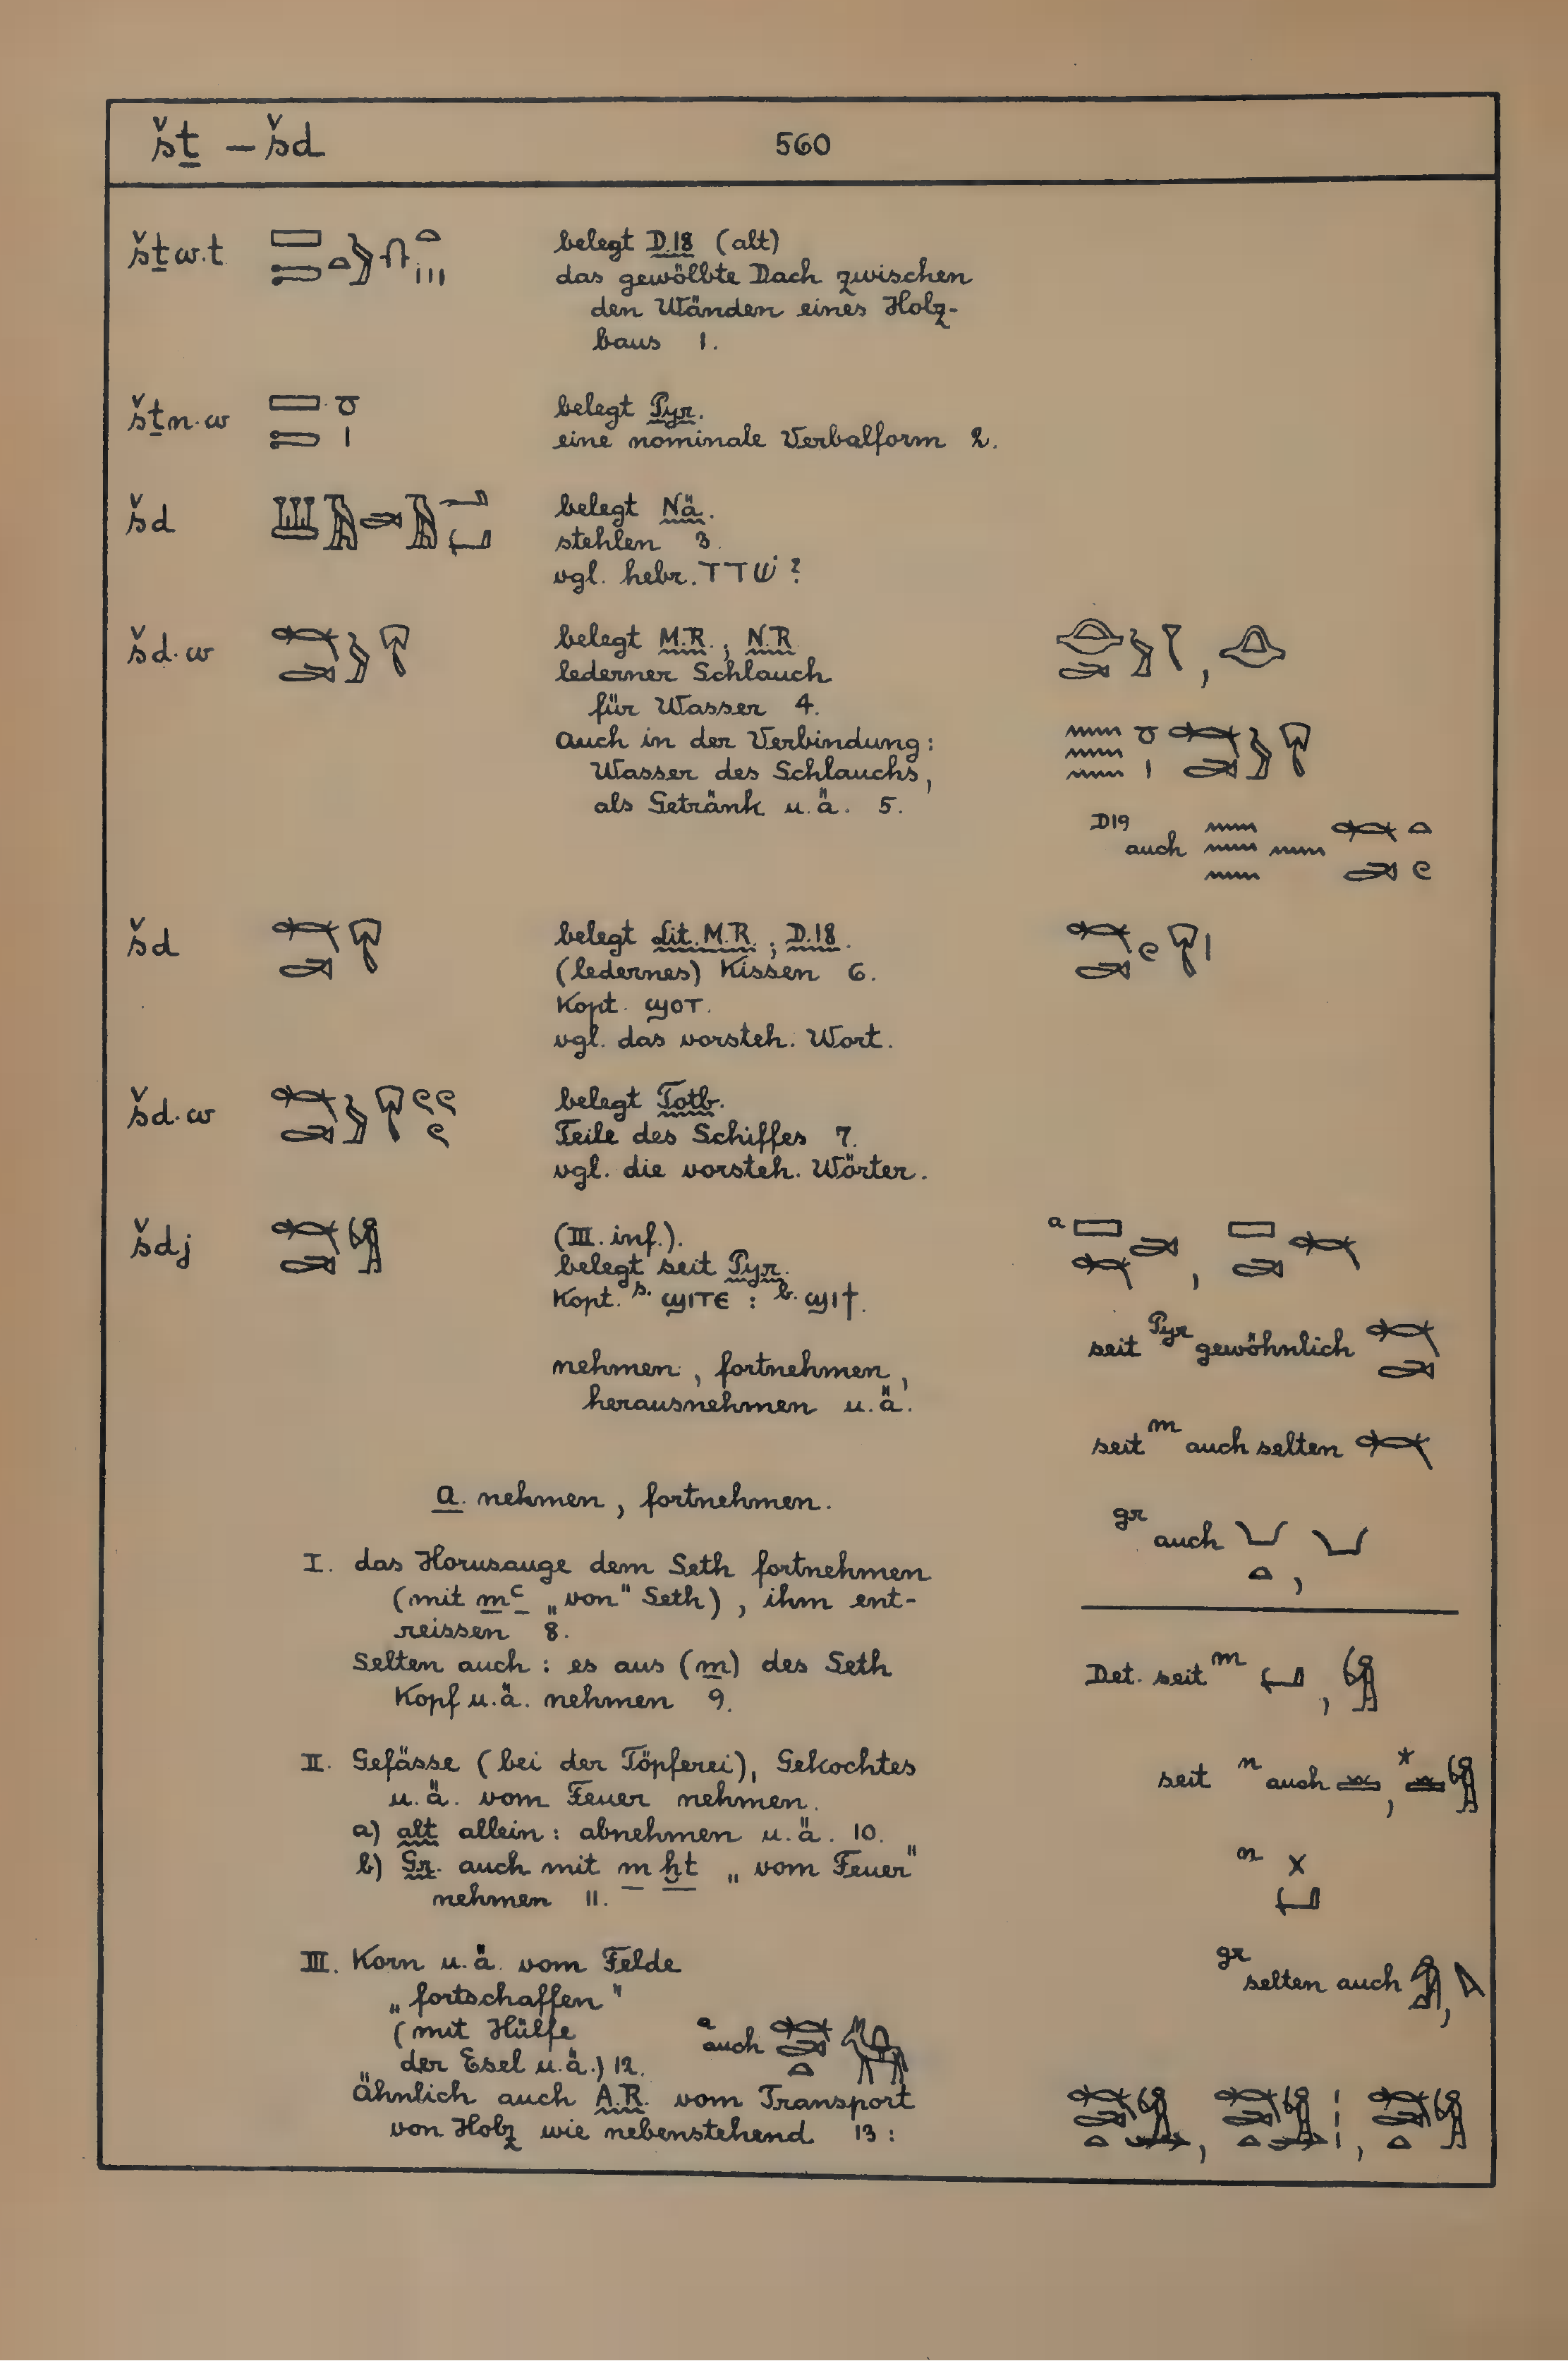 šṯ – šd 560
šṯw.t belegt D.18 (alt)
das gewölbte Dach zwischen
den Wänden eines Holz-
baus 1.
šṯn.w belegt Pyr.
eine nominale Verbalform 2.
šd belegt Nä.
stehlen 3.
vgl. hebr. שדד ?
šd.w belegt M.R.; N.R.
lederner Schlauch
für Wasser 4.
Auch in der Verbindung:
Wasser des Schlauchs,
als Getränk u.ä. 5.
D19
auch
šd belegt Lit. M.R.; D.18.
(ledernes) Kissen 6.
Kopt. ϣοτ.
vgl. das vorsteh. Wort.
šd.w belegt Totb.
Teile des Schiffes 7.
vgl. die vorsteh. Wörter.
šdj (III. inf.).
belegt seit Pyr.
Kopt. s. ϣιτε : b. ϣιϯ.
nehmen, fortnehmen,
herausnehmen u.ä.
a ,
seit Pyr gewöhnlich
seit m auch selten
gr auch ,
Det. seit m ,
seit n auch , *
n
gr selten auch ,
a. nehmen, fortnehmen.
I. das Horusauge dem Seth fortnehmen
(mit mꜥ „von" Seth), ihm ent-
reissen 8.
Selten auch: es aus (m) des Seth
Kopf u.ä. nehmen 9.
II. Gefässe (bei der Töpferei), Gekochtes
u.ä. vom Feuer nehmen.
a) alt allein: abnehmen u.ä. 10.
b) Gr. auch mit m ḫt „vom Feuer"
nehmen 11.
III. Korn u.ä. vom Felde
„fortschaffen"
(mit Hülfe
der Esel u.ä.) 12.
a auch
Ähnlich auch A.R. vom Transport
von Holz wie nebenstehend 13: